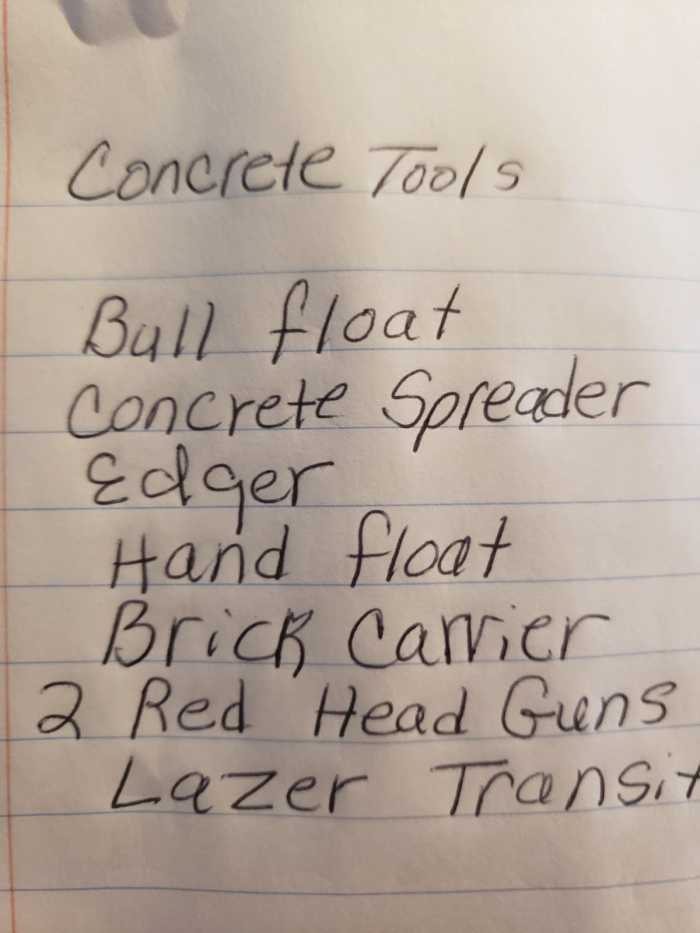 Concrete Tools
Bull float
Concrete Spreader
Edger
Hand float
Brick Carrier
2 Red Head Guns
Lazer Transit